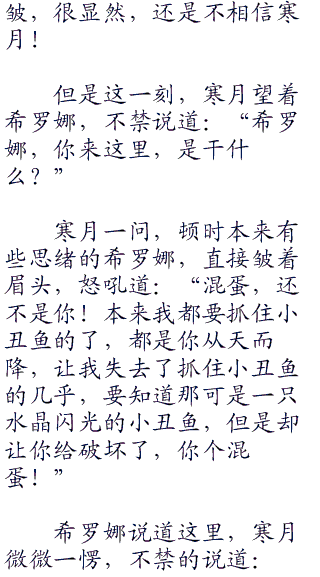 皱，很显然，还是不相信寒
月！
但是这一刻，寒月望着
希罗娜，不禁说道：“希罗
娜，你来这里，是干什
么？”
寒月一问，顿时本来有
些思绪的希罗娜，直接皱着
眉头，怒吼道：“混蛋，还
不是你！本来我都要抓住小
丑鱼的了，都是你从天而
降，让我失去了抓住小丑鱼
的几乎，要知道那可是一只
水晶闪光的小丑鱼，但是却
让你给破坏了，你个混
蛋！”
希罗娜说道这里，寒月
微微一愣，不禁的说道：